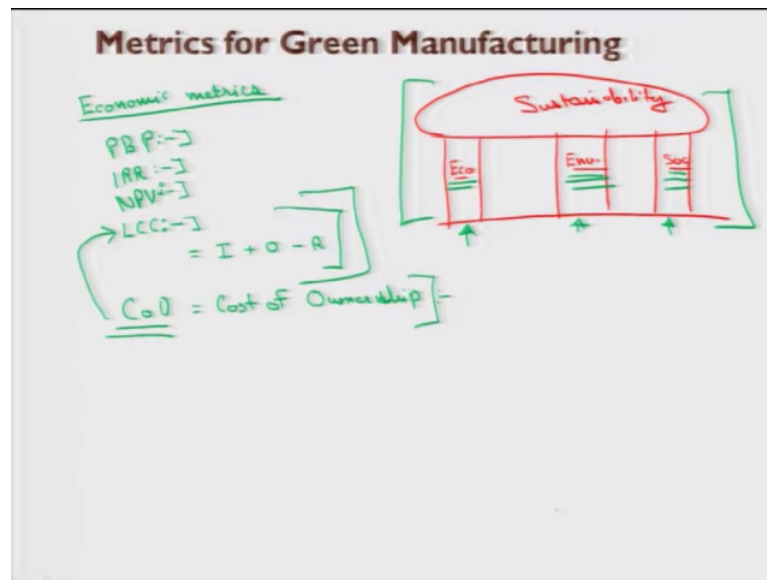 Metrics for Green Manufacturing
Economic metrics
PBP:-]
IRR:-]
NPV:-]
LCC:-]
= I + O - R
CoO = Cost of Ownership]:-
Sustainability
Eco
Env.
Soc